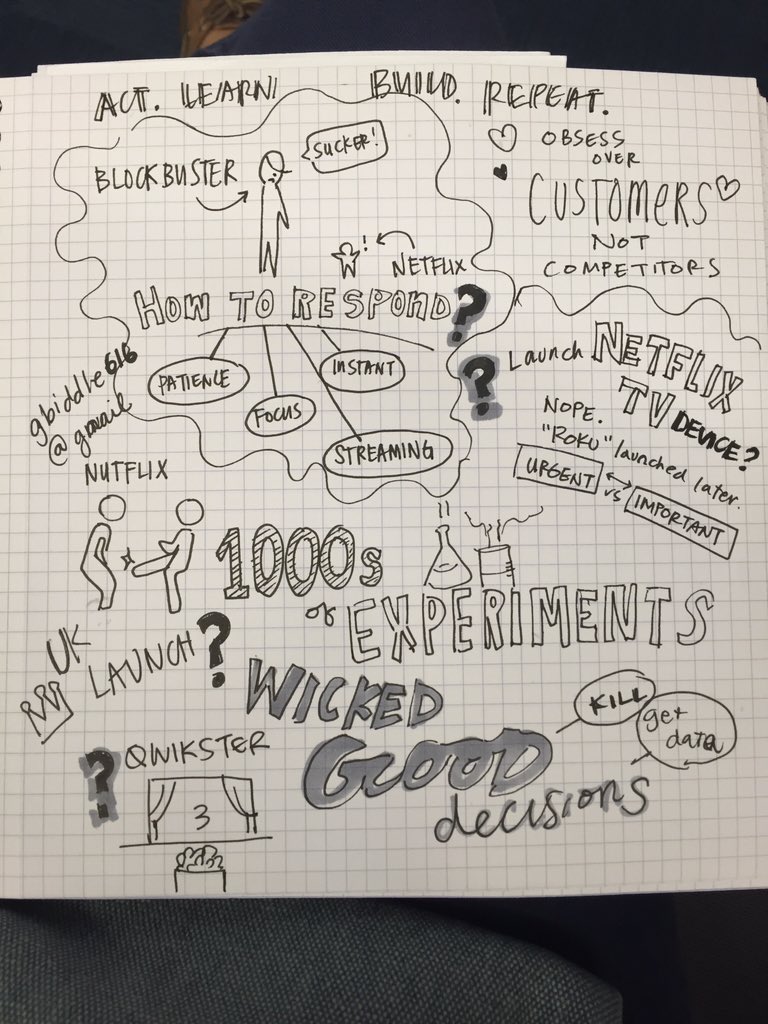 ACT. LEARN. BUILD. REPEAT.
BLOCKBUSTER
SUCKER!
!
NETFLIX
HOW TO RESPOND?
PATIENCE
FOCUS
INSTANT
STREAMING
OBSESS
OVER
CUSTOMERS
NOT
COMPETITORS
? Launch NETFLIX
TV DEVICE?
NOPE.
"ROKU" launched later.
URGENT
vs
IMPORTANT
gbiddle616
@gmail
NUTFLIX
1000s
of EXPERIMENTS
UK
LAUNCH?
WICKED
GOOD
decisions
KILL
get
data
? QWIKSTER
3